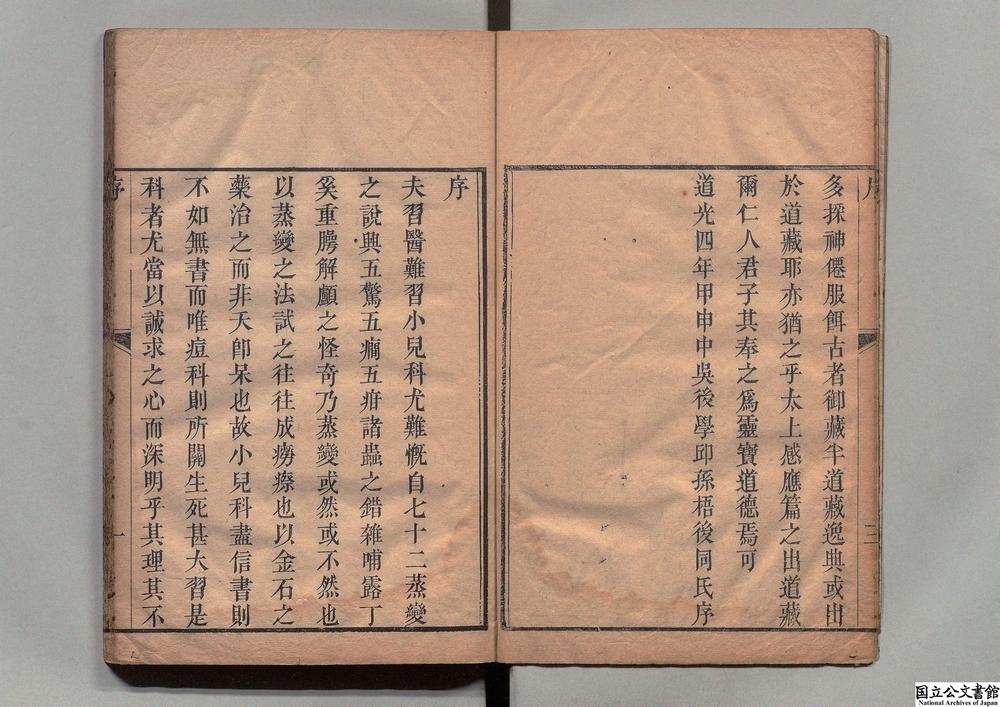 序
三
多採神僊服餌古者御藏半道藏逸典或出
於道藏耶亦猶之乎太上感應篇之出道藏
爾仁人君子其奉之爲靈寶道德焉可
道光四年甲申中吳後學邱孫梧後同氏序
序
夫習醫難習小兒科尤難慨自七十二蒸變
之說典五驚五癎五疳諸蟲之錯雜哺露丁
奚重腭解顱之怪奇乃蒸變或然或不然也
以蒸變之法試之往往成癆瘵也以金石之
藥治之而非夭卽呆也故小兒科盡信書則
不如無書而唯痘科則所關生死甚大習是
科者尤當以誠求之心而深明乎其理其不
序
一
国立公文書館
National Archives of Japan